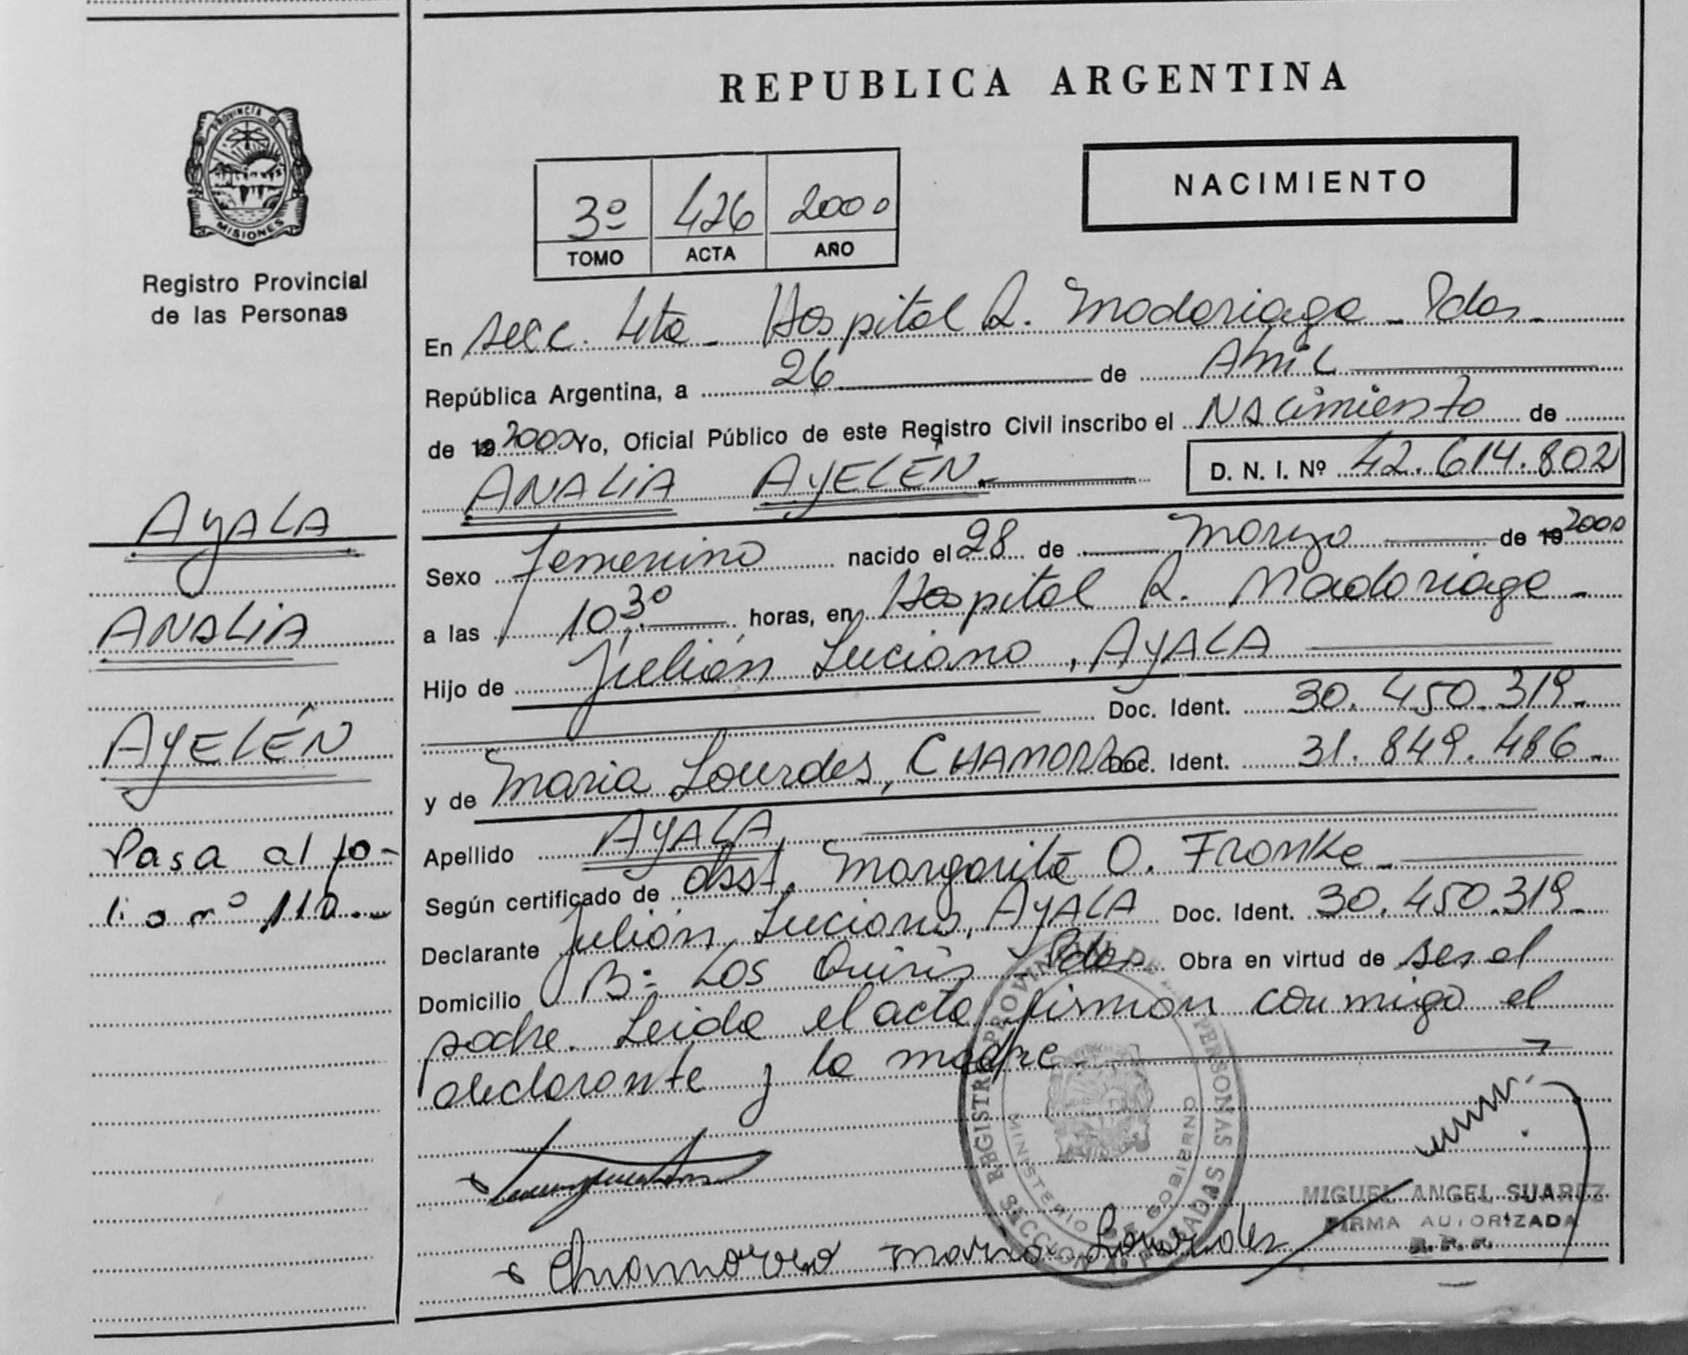 REPUBLICA ARGENTINA
PROVINCIA DE
MISIONES
Registro Provincial
de las Personas
NACIMIENTO
3º 426 2000
TOMO ACTA AÑO
En secc. 4ta - Hospital R. Madariaga - Pdas -
República Argentina, a 26 de Abril
de 19 2000 Yo, Oficial Público de este Registro Civil inscribo el Nacimiento de
ANALIA AYELÉN. D. N. I. Nº 42.614.802
Sexo femenino nacido el 28 de Marzo de 19 2000
a las 10 30 horas, en Hospital R. Madariaga -
Hijo de Julián Luciano, AYALA
Doc. Ident. 30.450.319-
y de Maria Lourdes, CHAMORRO Doc. Ident. 31.849.486-
Apellido AYALA
Según certificado de Obst. Margarita O. Franke -
Declarante Julián Luciano, AYALA Doc. Ident. 30.450.319-
Domicilio Bº Los - Pdas. Obra en virtud de ser el
padre. Leida el acta firman conmigo el
declarante y la madre -
AYALA
ANALIA
AYELÉN
Pasa al fo-
lio nº 110.-
REGISTRO PROVINCIAL DE LAS PERSONAS
MINISTERIO DE GOBIERNO
SECCION 4ª POSADAS
Chamorro maria Lourdes
MIGUEL ANGEL SUAREZ
FIRMA AUTORIZADA